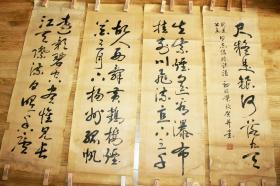 故人西辭黃鶴樓煙
花三月下揚州孤帆
遠影碧空盡惟見長
江天際流日照香爐
生紫煙遙看瀑布
掛前川飛流直下三千
尺疑是銀河落九天